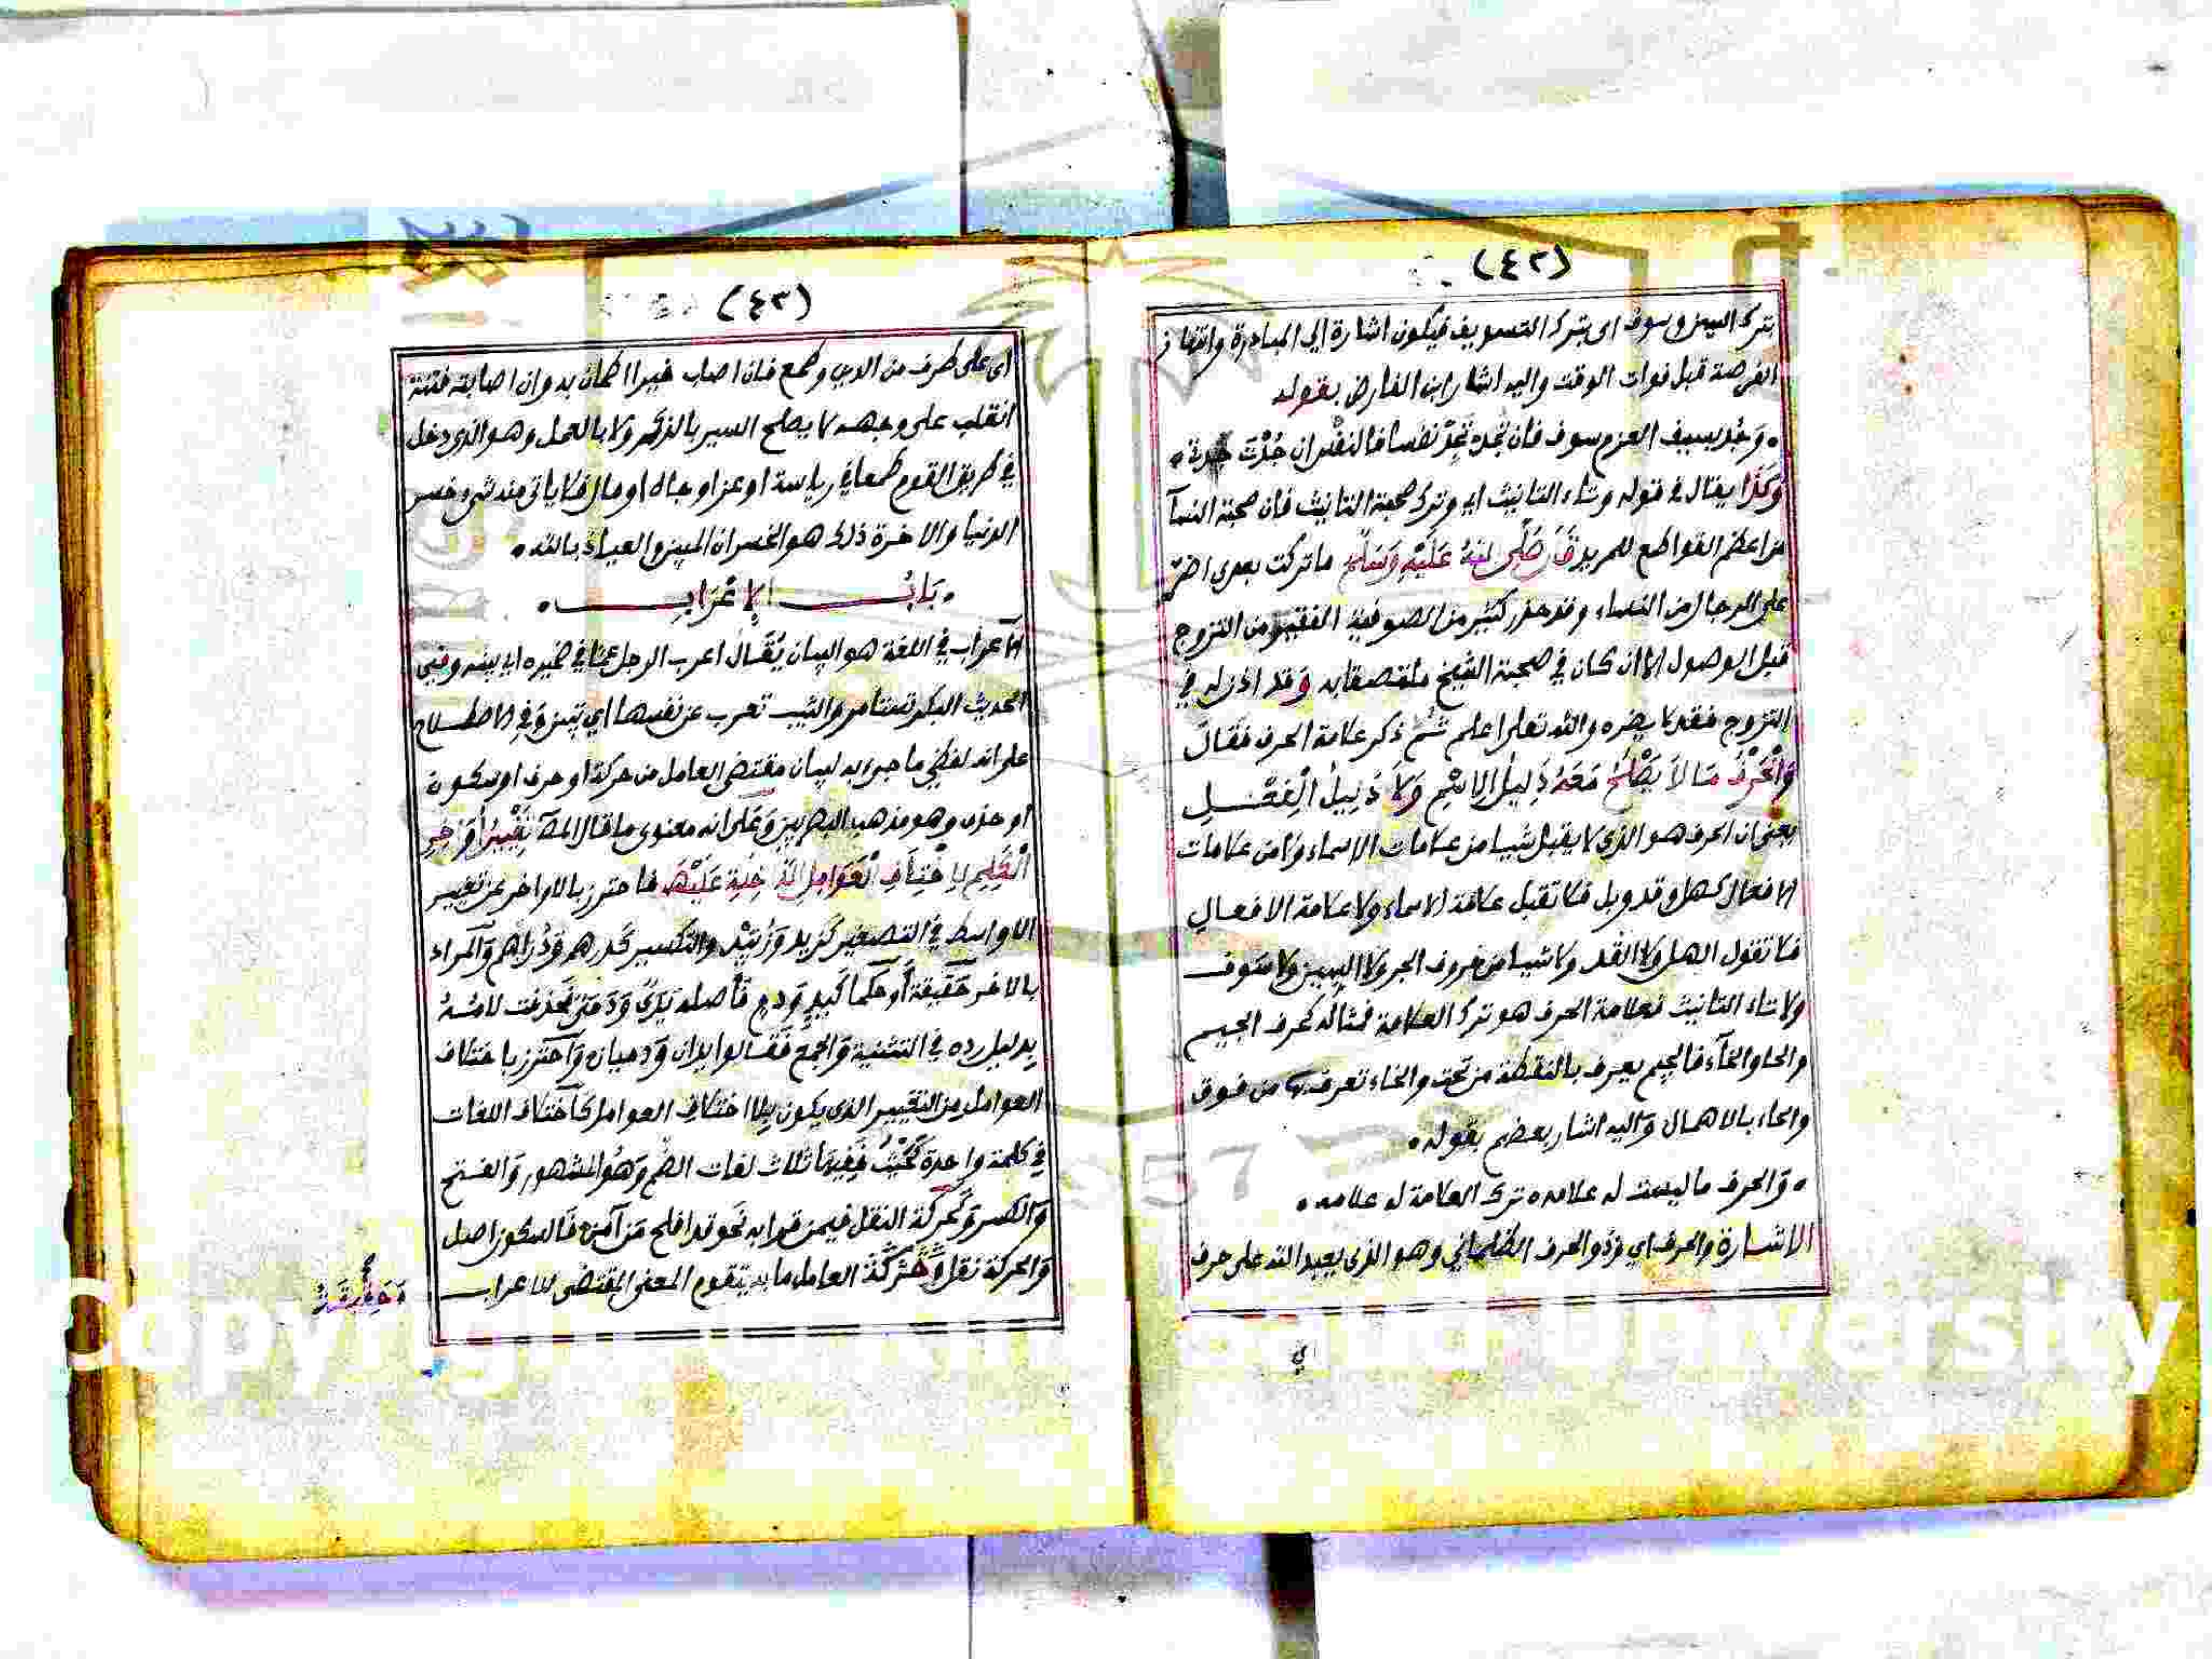 (٤٢)
بترك السين وسوف اى بترك التسويف فيكون اشارة الي المبادرة وانتهاز
الفرصة قبل فوات الوقت واليه اشار ابن الفارض بقوله
• وَجُد بسيف العزم سوف فان تَجُد تَجِدْ نفسا فالنفس ان جُدْتَ جدت •
وَكَذَا يقال في قوله وتاء التانيث اي وترك صحبة التانيث فان صحبة النسآ
من اعظم القواطع للمريد قَالَ صَلَّى اللهُ عَلَيْهِ وَسَلَّمَ ما تركت بعدى اضر
على الرجال من النساء وقد حذر كثير من الصوفية الفقير من التزوج
قبل الوصول الا ان كان في صحبة الشيخ ملتصقا به وَقد اذن له في
التزوج فقد لا يضره والله تعلى اعلم ثُمَّ ذكر علامة الحرف فقالَ
وَالْحَرْفُ مَا لاَ يَصْلُحُ مَعَهُ دَلِيلُ الاِسْمِ وَلاَ دَلِيلُ الْفِعْـــلِ
يعني ان الحرف هو الذي لا يقبل شيا من علامات الاسماء ولا من علامات
الافعال كهل وقد وبل فلا تقبل علامة الاسماء ولا علامة الافعال
فلا تقول الهل ولا القد ولا شيا من حروف الجر ولا السين ولا سَوف
ولا تاء التانيث فعلامة الحرف هو ترك العلامة فمثاله كحرف الجيم
والحا والخآء فالجيم يعرف بالنقطة من تحت والخاء تعرف بها من فوق
والحاء بالاهمال وَاليه اشار بعضهم بقوله •
• وَالحرف ما ليست له علامه • ترك العلامة له علامه •
الاشارة والحرف اي وَذو الحرف الظلماني وهو الذي يعبد الله على حرف
ي
(٤٣)
اى على طرف من الدين وطمع فان اصاب خيرا اطمان به وان اصابته فتنة
انقلب على وجهه لا يصلح للسير بالذكر ولا بالعمل وهو الذى دخل
في طريق القوم طمعا في رياسة او عز او جاه او مال فلا ياتى منه شى وخسر
الدنيا والاخرة ذلك هو الخسران المبين والعياذ بالله •
• بَابُ الإِعْرَابِ •
الاعراب في اللغة هو البيان يُقَال اعرب الرجل عما في ضميره اي بينه وفي
الحديث البكر تستأمر والثيب تعرب عن نفسها اي تبين وَفي الاصطـلاح
على انه لفظي ما جىء به لبيان مقتضى العامل من حركة او حرف او سكون
او حذف وهو مذهب البصريين وَعَلى انه معنوى ما قال المصـ تَغْيِيرُ أَوَاخِرِ
الْكَلِمِ لاِخْتِلاَفِ الْعَوَامِلِ الدَّاخِلَةِ عَلَيْهَا فاحترز بالاواخر عن تغيير
الاواسط في التصغير كزيد وَزُيَيْد والتكسير كدرهم وَدَراهم وَالمراد
بالاخر حَقِيقَة أَوْ حُكما كَيد وَدم فأصله يَدَيٌ وَدَمَيٌ فحذفت لامُهُ
بدليل رده في التثنية وَالجمع فَقَالوا يديان وَدميان وَاحترز باختلاف
العوامل من التغيير الذى يكون بلا اختلاف العوامل كاَختلاف اللغات
في كلمة واحدة كحَيْثُ فَفيهَا ثلاث لغات الضم وَهُوَ المشهور وَالفـتح
وَالكسر وَكَحركة النقل فيمن قرا به نَحو قد افلح مَن آمن فَالسكون اصل
وَالحركة نقل وَحَرَكَة العامل ما به يتقوم المعنى المقتضى للاعراب